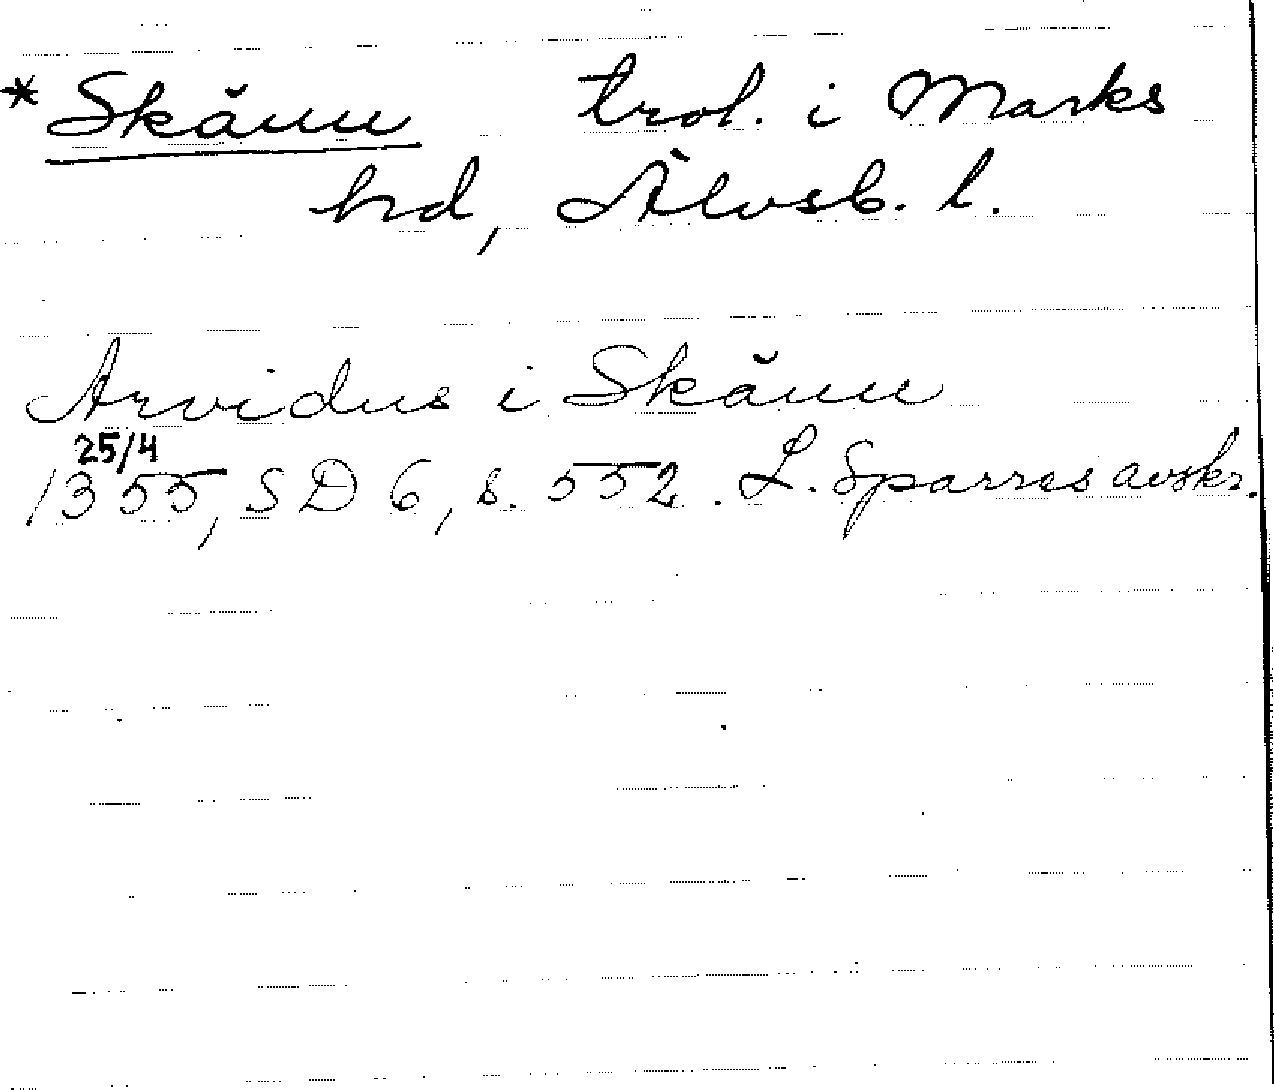 * Skänu trol. i Marks
hd, Älvsb. l.
Arvidus i Skänu
25/4
1355, SD 6, s. 552. L. Sparres avskr.